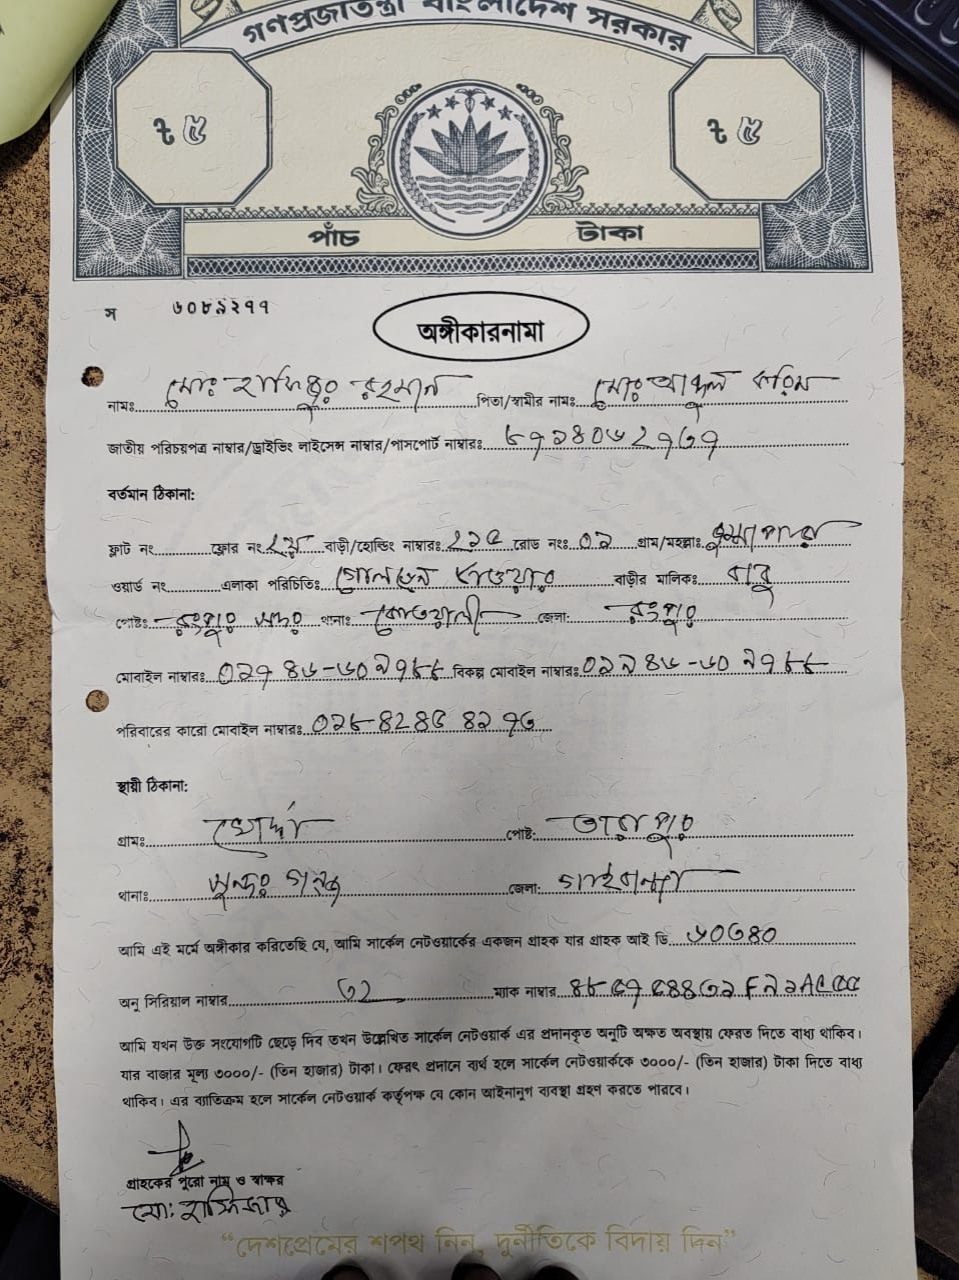 গণপ্রজাতন্ত্রী বাংলাদেশ সরকার
৳ ৫ ৳ ৫
পাঁচ টাকা
স ৬০৮৯২৭৭
অঙ্গীকারনামা
নামঃ মোঃ হাফিজুর রহমান পিতা/স্বামীর নামঃ মোঃ আব্দুল করিম
জাতীয় পরিচয়পত্র নাম্বার/ড্রাইভিং লাইসেন্স নাম্বার/পাসপোর্ট নাম্বারঃ
বর্তমান ঠিকানা:
ফ্লাট নং ফ্লোর নং ২য় বাড়ী/হোল্ডিং নাম্বারঃ ২১৫ রোড নংঃ ০১ গ্রাম/মহল্লাঃ
ওয়ার্ড নং এলাকা পরিচিতিঃ গোল্ডেন বাড়ীর মালিকঃ বাবু
পোষ্টঃ রংপুর সদর থানাঃ কোতয়ালী জেলা: রংপুর
মোবাইল নাম্বারঃ ০১৭৪৬-৬০১৭৮৮ বিকল্প মোবাইল নাম্বারঃ ০১৯৪৬-৬০১৭৮৮
পরিবারের কারো মোবাইল নাম্বারঃ ০১৮৪২৪৫৪১৭৩
স্থায়ী ঠিকানা:
গ্রামঃ পোষ্ট:
থানাঃ সুন্দরগঞ্জ জেলা: গাইবান্ধা
আমি এই মর্মে অঙ্গীকার করিতেছি যে, আমি সার্কেল নেটওয়ার্কের একজন গ্রাহক যার গ্রাহক আই ডি ৬০৩৪০
অনু সিরিয়াল নাম্বার ৩২ ম্যাক নাম্বার
আমি যখন উক্ত সংযোগটি ছেড়ে দিব তখন উল্লেখিত সার্কেল নেটওয়ার্ক এর প্রদানকৃত অনুটি অক্ষত অবস্থায় ফেরত দিতে বাধ্য থাকিব।
যার বাজার মূল্য ৩০০০/- (তিন হাজার) টাকা। ফেরৎ প্রদানে ব্যর্থ হলে সার্কেল নেটওয়ার্ককে ৩০০০/- (তিন হাজার) টাকা দিতে বাধ্য
থাকিব। এর ব্যতিক্রম হলে সার্কেল নেটওয়ার্ক কর্তৃপক্ষ যে কোন আইনানুগ ব্যবস্থা গ্রহণ করতে পারবে।
গ্রাহকের পুরো নাম ও স্বাক্ষর
মো: হাফিজার
"দেশপ্রেমের শপথ নিন, দুর্নীতিকে বিদায় দিন"